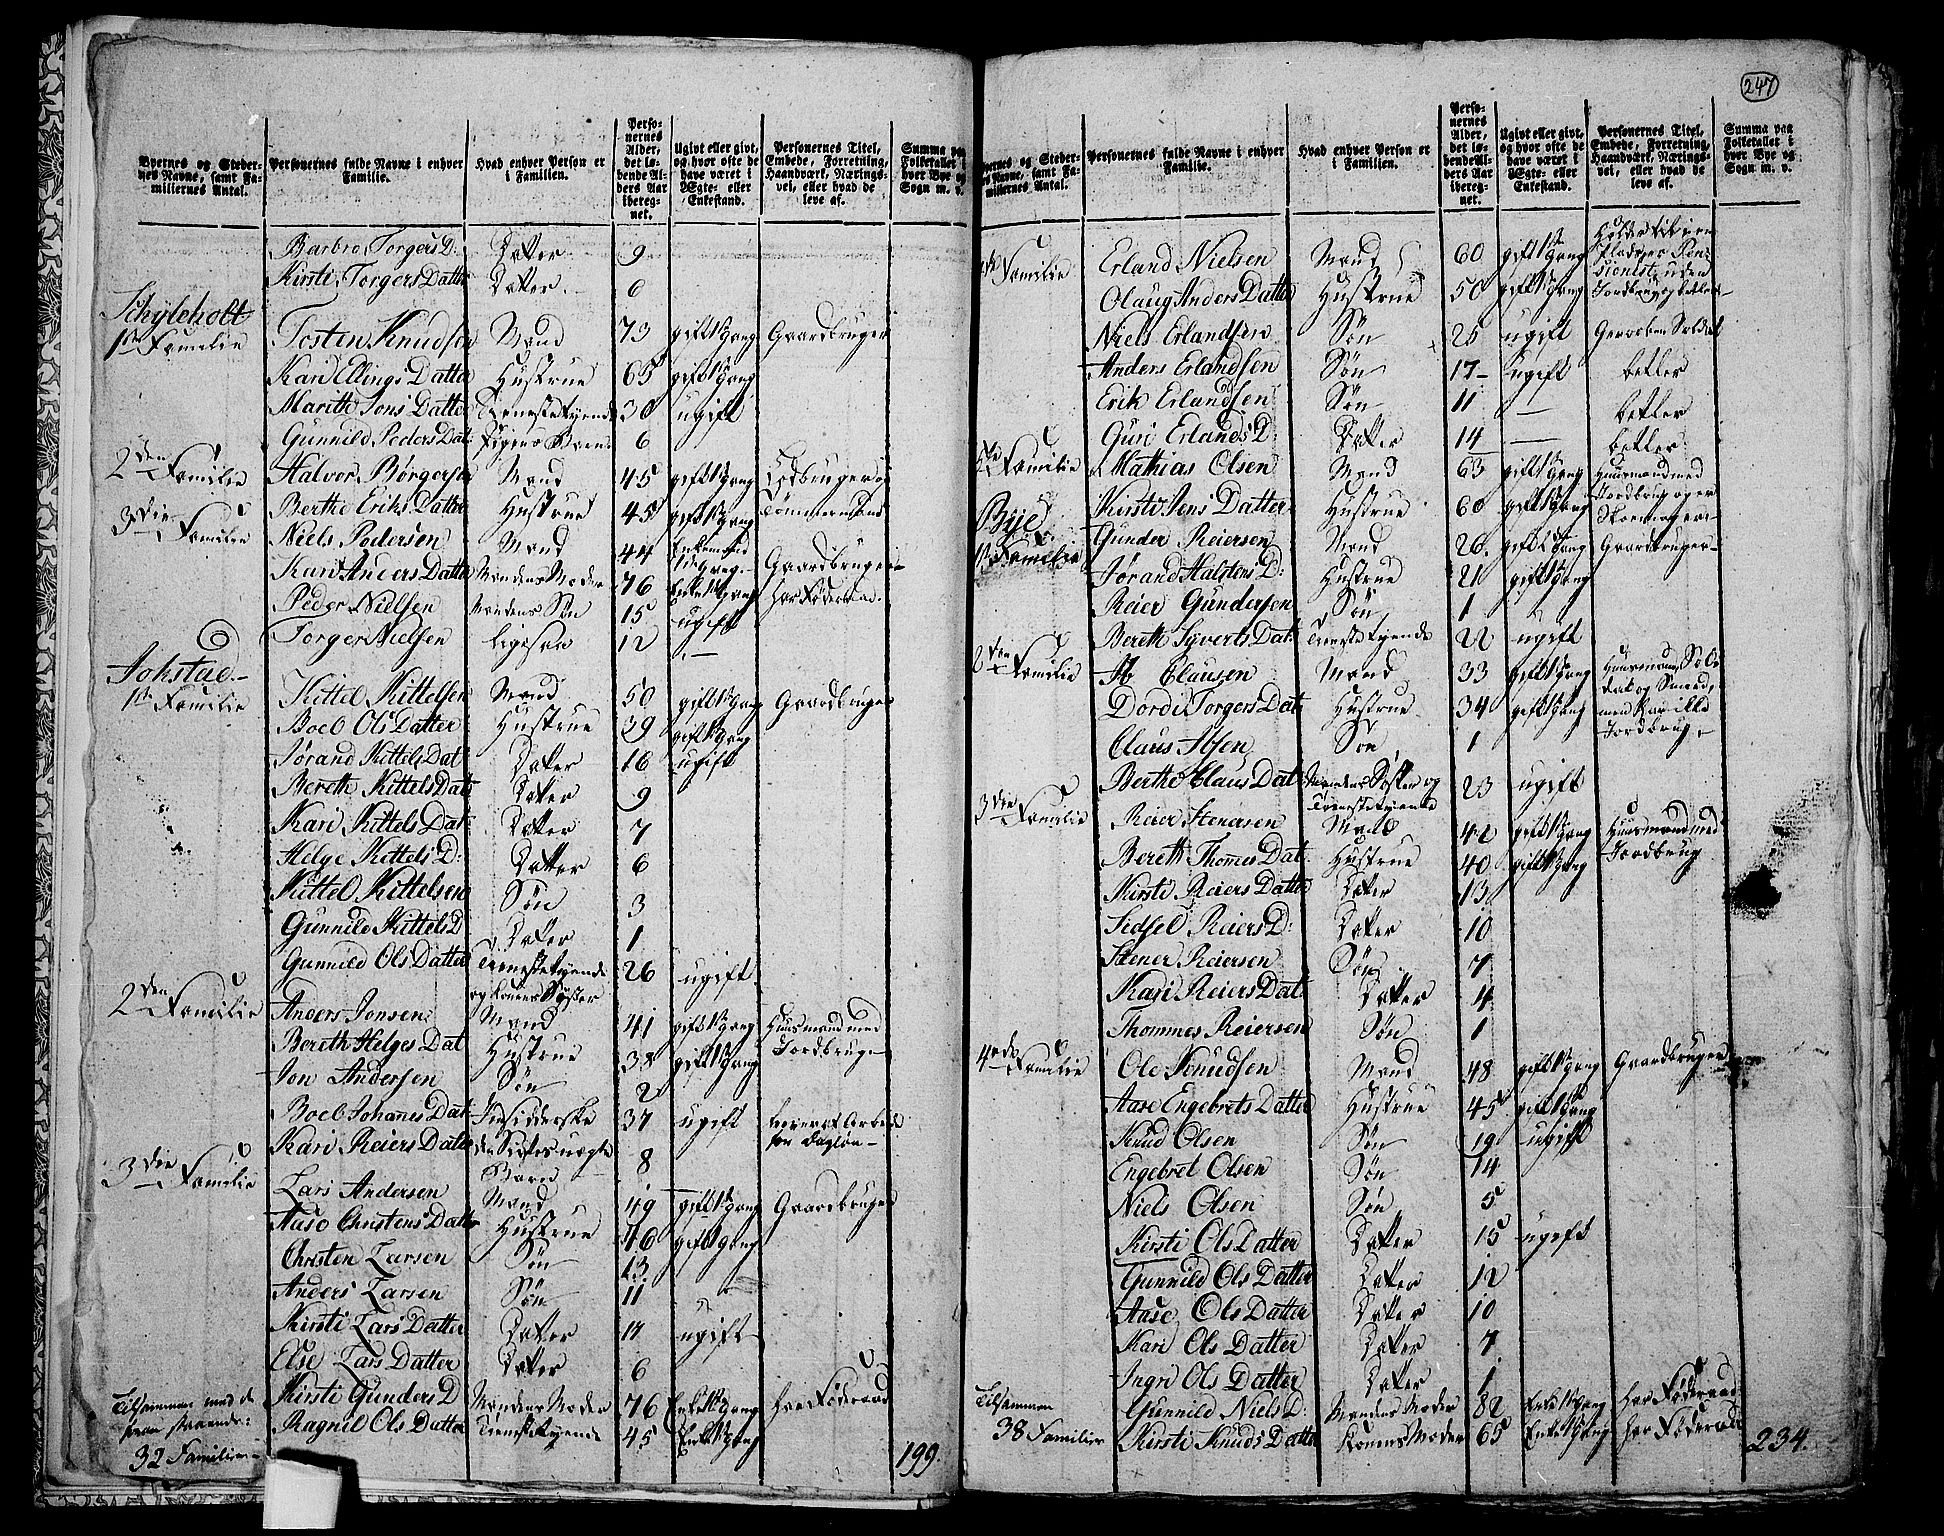 247
Byernes og Steder-nes Navne, samt Fa-miliernes Antal. | Personernes fulde Navne i enhver Familie. | Hvad enhver Person er i Familien. | Perso-nernes Alder, det lø-bende Al-ders Aar iberegnet. | Ugivt eller givt, og hvor ofte de have været i Ægte- eller Enkestand. | Personernes Titel, Embede, Forretning, Haandværk, Nærings-vei, eller hvad de leve af. | Summa paa Folketallet i hver Bye og Sogn m. v.
Barbro Torgers D: | Datter | 9
Kirsti Torgers Datter | Datter | 6
Schyleholt
1ste Familie | Tosten Knudsen | Mand | 73 | gift 1 Gang | Gaardbruger
Kari Ellings Datter | Hustrue | 65 | gift 1 Gang
Marithe Jons Datter | Tienestetyende | 30 | ugift
Gunnild Peders Dat: | 6
2den Familie | Halvor Børgersen | Mand | 45 | gift 1 Gang | Jordbruger og
Berthe Eriks Datter | Hustrue | 45 | gift 1 Gang | Tømmermand
3die Familie | Niels Pedersen | Mand | 44 | Enkemand 1ste Gang | Gaardbruger
Kari Anders Datter | Mandens Moder | 76 | Enke 1 Gang | har Føderaad
Peder Nielsen | Mandens Søn | 15 | ugift
Torger Nielsen | ligesaa | 12 | —
Jokstad
1ste Familie | Kittel Kittelsen | Mand | 50 | gift 1 Gang | Gaardbruger
Boel Ols Datter | Hustrue | 39 | gift 1 Gang
Jørand Kittels Dat | Datter | 16 | ugift
Bereth Kittels Dat: | Datter | 9
Kari Kittels Dat: | Datter | 7
Helge Kittels D: | Datter | 6
Kittel Kittelsen | Søn | 3
Gunnild Kittels D | Datter | 1
Gunnild Ols Datter | Tienestetyende og Konens Søster | 26 | ugift
2den Familie | Anders Jonsen | Mand | 41 | gift 1 Gang | Huusmand med
Bereth Helges Dat | Hustrue | 38 | gift 1 Gang | Jordbrug
Jon Andersen | Søn | 2
Boel Johanes Dat | Indsidderske | 37 | ugift | lever af Arbeid for Dagløn
Kari Reiers Datter | den Sidstes uægte Barn | 8
3die Familie | Lars Andersen | Mand | 49 | gift 1 Gang | Gaardbruger
Aase Christens Datter | Hustrue | 46 | gift 1 Gang
Christen Larsen | Søn | 13
Anders Larsen | Søn | 11
Kirsti Lars Datter | Datter | 17 | ugift
Else Lars Datter | Datter | 6
Kirsti Gunders D | Mandens Moder | 76 | Enke 1 Gang | har Føderaad
Ragnil Ols Datter | Tienestetyende | 45 | Enke 1 Gang
Tilsammen med de
32 Familier | 199.
Byernes og Steder-nes Navne, samt Fa-miliernes Antal. | Personernes fulde Navne i enhver Familie. | Hvad enhver Person er i Familien. | Perso-nernes Alder, det lø-bende Al-ders Aar iberegnet. | Ugivt eller givt, og hvor ofte de have været i Ægte- eller Enkestand. | Personernes Titel, Embede, Forretning, Haandværk, Nærings-vei, eller hvad de leve af. | Summa paa Folketallet i hver Bye og Sogn m. v.
Familie | Erland Nielsen | Mand | 60 | gift 1 Gang | Pensionist uden
Olaug Anders Datter | Hustrue | 50 | gift 1 Gang | Jordbrug og betler
Niels Erlandsen | Søn | 25 | ugift | Gevorben Soldat
Anders Erlandsen | Søn | 17 | ugift | betler
Erik Erlandsen | Søn | 11 | — | betler
Guri Erlands D. | Datter | 14 | — | betler
5te Familie | Mathias Olsen | Mand | 63 | gift 1 Gang | Huusmand med
Kirsti Jens Datter | Hustrue | 60 | gift 1 Gang | Jordbrug og er Skoemager
Bye
1ste Familie | Gunder Reiersen | Mand | 26 | gift 1 Gang | Gaardbruger
Jørand Halstens D: | Hustrue | 21 | gift 1 Gang
Reier Gundersen | Søn | 1
Bereth Syverts Dat: | Tienestetyende | 22 | ugift
2den Familie | Ib Clausen | Mand | 33 | gift 1 Gang | Huusmand, Soldat og Smed,
Dordi Torgers Dat | Hustrue | 34 | gift 1 Gang | men har ille Jordbrug
Claus Ibsen | Søn | 1
Berthe Claus Dat | Mandens Søster og Tienestetyende | 23 | ugift
3die Familie | Reier Stenersen | Mand | 42 | gift 1 Gang | Huusmand med
Bereth Thomes Dat | Hustrue | 40 | gift 1 Gang | Jordbrug
Kirsti Reiers Datter | Datter | 13
Sidsel Reiers D: | Datter | 10
Stener Reiersen | Søn | 7
Kari Reiers Dat: | Datter | 4
Thommes Reiersen | Søn | 1
4de Familie | Ole Knudsen | Mand | 48 | gift 1 Gang | Gaardbruger
Aase Engebrets Datter | Hustrue | 45 | gift 1 Gang
Knud Olsen | Søn | 19 | ugift
Engebret Olsen | Søn | 14
Niels Olsen | Søn | 5
Kirsti Ols Datter | Datter | 15 | ugift
Gunnild Ols Datter | Datter | 12
Aase Ols Datter | Datter | 10
Kari Ols Datter | Datter | 7
Ingri Ols Datter | Datter | 1
Tilsammen | Gunnild Niels D: | Mandens Moder | 82 | Enke 1 Gang | har Føderaad
38 Familier | Kirsti Knuds Datter | Konens Moder | 65 | Enke 1 Gang | har Føderaad | 234.